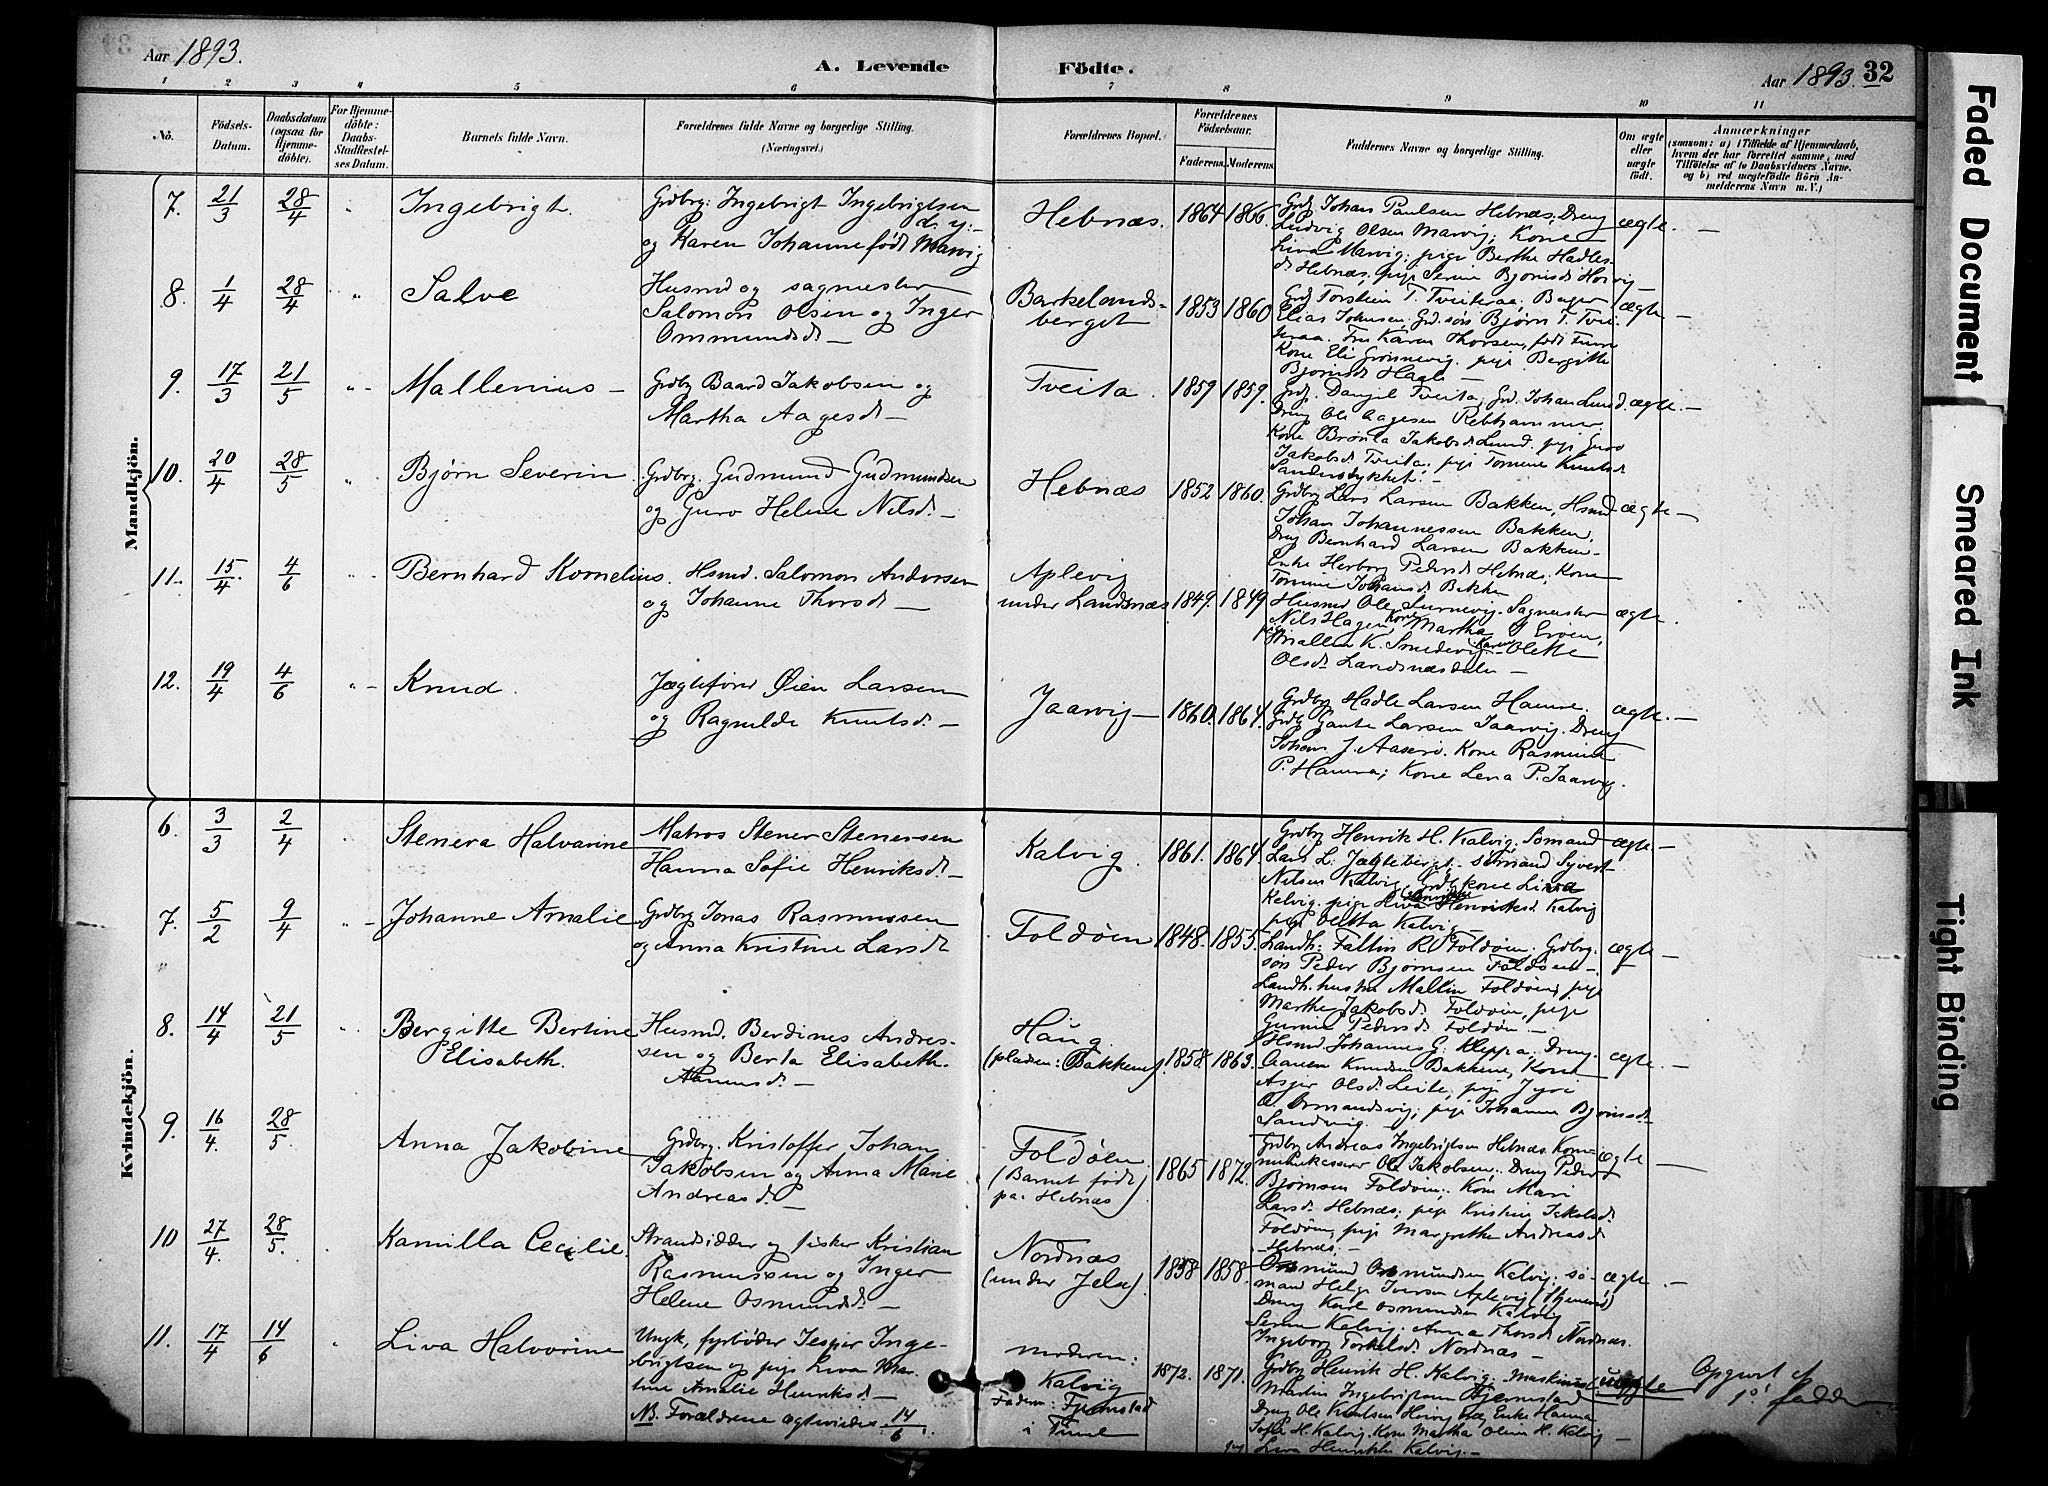 Aar 1893.
A. Levende Födte.
Aar 1893. 32
1 2 3 4 5 6 7 8 9 10 11
No.
Födsels-Datum.
Daabsdatum (ogsaa for Hjemmedöbte).
For Hjemmedöbte: Daabs-Stadfæstelses Datum.
Barnets fulde Navn.
Forældrenes fulde Navne og borgerlige Stilling. (Næringsvei.)
Forældrenes Bopæl.
Forældrenes Födselsaar.
Faderens. Moderens.
Faddernes Navne og borgerlige Stilling.
Om ægte eller uægte födt.
Anmærkninger
(saasom: a) i Tilfælde af Hjemmedaab, hvem der har forrettet samme, med Tilföielse af to Daabsvidners Navne. og b) ved uægtefödte Börn Anmelderens Navn m. V.)
Mandkjön.
7. 21/3 28/4 " Ingebrigt.
Grdbrg: Ingebrigt Ingebrigtsen d. y.
og Karen Johanne født Marvig
Hebnæs. 1864 1866
Grdb Johan Paulsen Hebnæs, Dreng
Ludvig Olsen Marvig; Kone
Liva Marvig; pige Berthe Hadles-
dt Hebnæs, pige Serine Bjørnsdt
ægte. —
8. 1/4 28/4 " Salve
Husmd og sagmester
Salomon Olsen og Inger
Ommundsdt —
Barkelands-
berget 1853 1860
Grdb Torstein T. Tveiteraa. Bager
Elias Johnsen, Grd.søn Bjørn T. Tvei-
teraa. Fru Karen Thorsen, født
Kone Eli Grønnevig. pige Bergitte
Bjørnsdt Hadle —
ægte —
9. 17/3 21/5 " Mallenius —
Grdbr Baard Jakobsen og
Martha Aagesdt —
Tveita. 1859 1859.
Grdb. Daniel Tveita, Grd. Johan Lund
Dreng Ole Aagesen Rebhammer
Kone Brønla Jakobsdt Lund, pige Guro
Jakobsdt Tveita; pige Tomine Knutsdt
Sandsstykket. —
ægte. —
10. 20/4 28/5 " Bjørn Severin
Grdbrg. Gudmund Gudmundsen
og Guro Helene Nilsdt —
Hebnæs 1852 1860.
Grdbrg Lars Larsen Bakken, Hsmd
Johan Johannessen Bakken,
Dreng Bernhard Larsen Bakken —
Enke Herborg Pedersdt Hebnæs, Kone
Tomine Johansdt Bakken
ægte —
11. 15/4 4/6 " Bernhard Kornelius.
Hsmd. Salomon Andersen
og Johanne Thorsdt —
Aplevig
under Landsnæs 1849. 1849
Husmd Ole Surnevig. Sagmester
Nils Hagen, Kone Martha
Mallene K. Smedevig. Karen Olette
Olsdt Landsnæsdalen —
ægte.
12. 19/4 4/6 " Knud.
Jægtefører Øien Larsen
og Ragnilde Knutsdt —
Jaarvig — 1860. 1864.
Grdbrg Hadle Larsen Hamre.
Grdb Gaute Larsen Jaarvig. Dreng
Johan J. Aaserø. Kone Rasmine
P. Hamra; Kone Lena P. Jaarvig.
ægte. —
Kvindekjön.
6. 3/3 2/4 " Stenera Halvarine
Matros Stener Stenersen
Hanna Sofie Henriksdt —
Kalvig. 1861. 1864
Grdbrg Henrik H. Kalvig; Sømand
Lars L. Jægteberg. sømand Syvert
Nilsen Kalvig, Grdb kone Liva
Kalvig. pige Liva Henriksd. Kalvig
pige Oletta Kalvig —
ægte —
7. 5/2 9/4 " Johanne Amalie
Grdbrg Jonas Rasmussen
og Anna Kristine Larsdt
Foldøen 1848. 1855.
Landh: Faltin R. Foldøen. Grdbrg.
søn Peder Bjørnsen Foldøen —
Landh. hustru Mallin Foldøen, pige
Marthe Jakobsdt Foldøen, pige
Gurine Pedersdt Foldøen —
ægte —
8. 14/4 21/5 " Bergitte Bertine
Elisabeth.
Husmd. Berdines Andres-
sen og Berta Elisabeth
Aamundsdt —
Haug
(pladsen: Bakkene). 1858. 1863.
Hsmd. Johannes G. Kleppa, Dreng
Aanen Knudsen Bakkene, Kone
Asger Olsdt Leite, pige Jyri
O. Ormandsvig; pige Johanne Bjørnsdt
Sandvig. —
ægte. —
9. 16/4. 28/5. Anna Jakobine
Grdbrg. Kristoffer Johan
Jakobsen og Anna Marie
Andreasdt —
Foldøen
(Barnet født
paa Hebnæs) 1865 1872.
Grdbrg Andreas Ingebrigtsen Hebnæs. Kom-
munekasserer Ole Jakobsen. Dreng Peder
Bjørnsen Foldøen. Kone Mari
Larsdt Hebnæs; pige Kristine Jakobsdt
Foldøen, pige Margrethe Andreasdt
Hebnæs. —
ægte —
10 27/4. 28/5. Kamilla Cecilie.
Strandsidder og fisker Kristian
Rasmussen og Inger
Helene Osmundsdt —
Nordnæs
(under Jelse) 1858 1858.
Osmund Osmundsen Kalvig; sø-
mand Helge Iversen Aplevig
Dreng Karl Osmundsen Kalvig
Serine Kalvig. Anna Thorsdt Nordnæs.
Ingeborg Torkelsdt Nordnæs —
ægte —
11. 17/4 14/6 " Liva Halvorine
Ungk, fyrbøder Jesper Inge-
brigtsen og pige Liva Mar-
tine Amalie Henriksdt —
NB. Forældrene ægteviedes 14/6.
moderen:
Kalvig
Faderen: Fjermestad
i Time 1872. 1871.
Grdbrg Henrik H. Kalvig; Maskinist
Martin Ingebrigtsen Fjermestad
Dreng Ole Knutsen Enke Hanna
Sofie H. Kalvig, Kone Martha Oline H. Kalvig —
pige Liva Henrikke Kalvig. —
uægte
Opgivet
Faded Document
Smeared Ink
Tight Binding